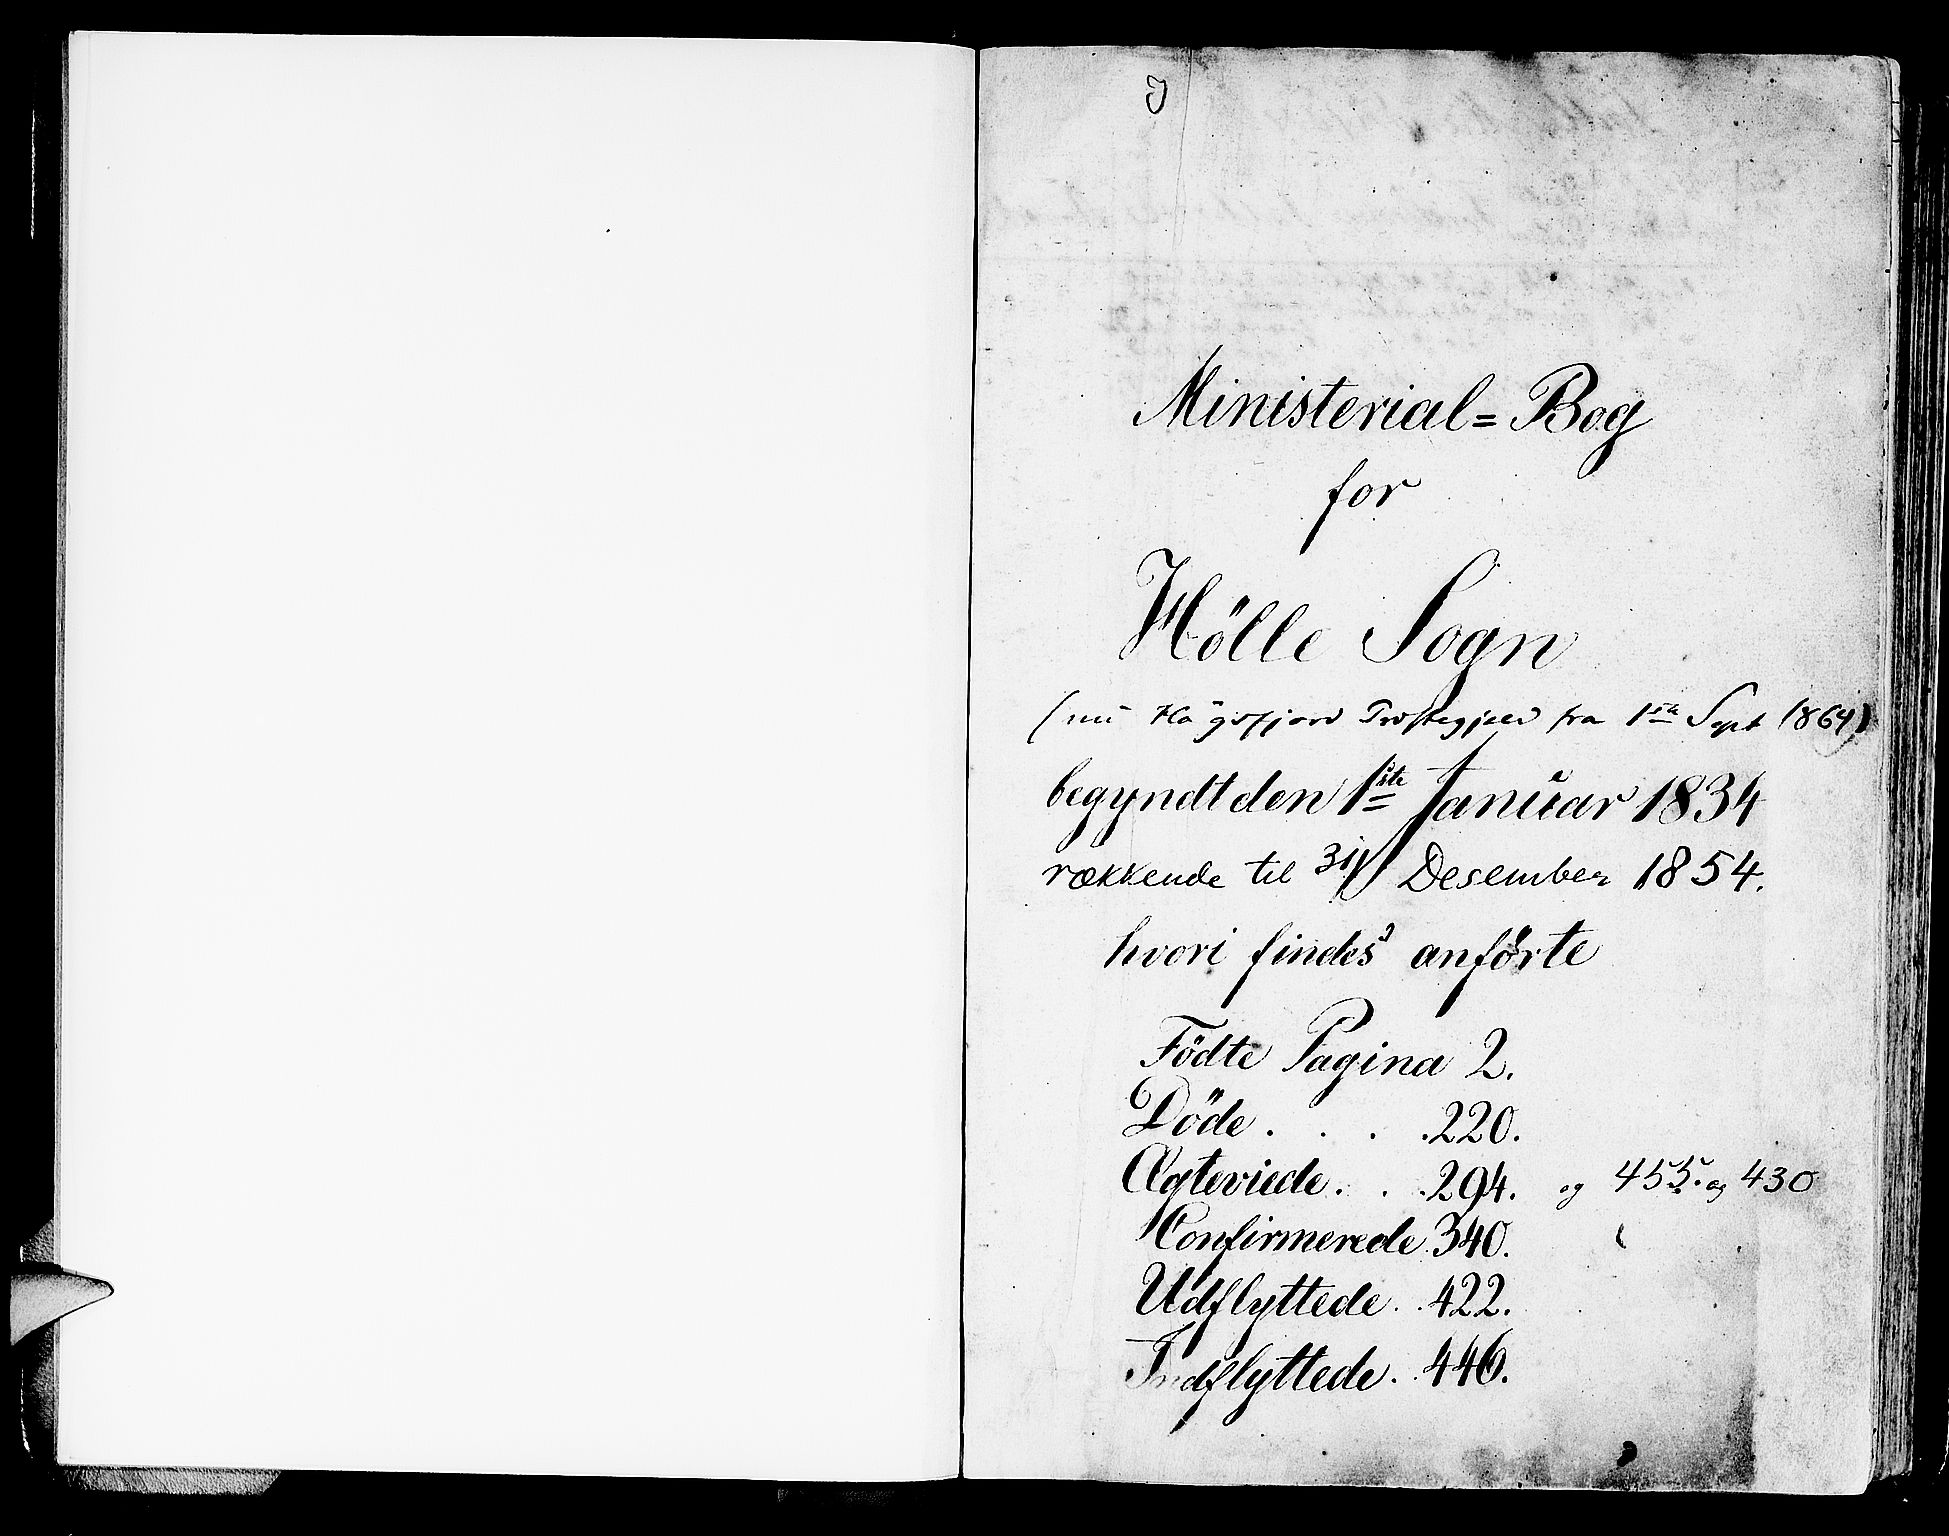 Ministerial=Bog
for
Hölle Sogn
(nu Högsfjord Præstegjeld fra 1ste Sept 1864)
begyndt den 1ste Januar 1834
rækkende til 31/ Desember 1854.
hvori findes anförte
Födte Pagina 2.
Döde . . . . 220.
Ægteviede . . . 294. og 455. og 430
Confirmerede . 340.
Udflyttede . . 422.
Indflyttede . . 446.